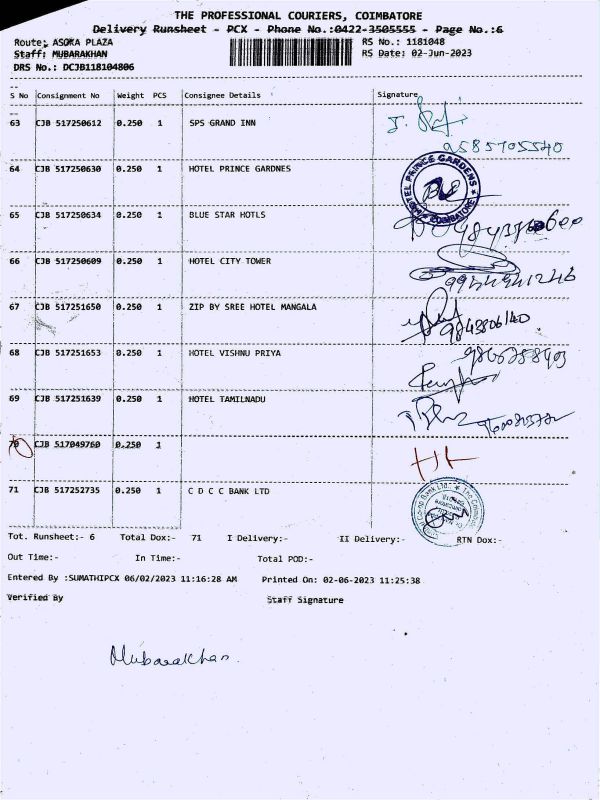 THE PROFESSIONAL COURIERS, COIMBATORE
Delivery Runsheet - PCX - Phone No.:0422-3505555 - Page No.:6
Route: ASOKA PLAZA RS No.: 1181048
Staff: MUBARAKHAN RS Date: 02-Jun-2023
DRS No.: DCJB118104806
S No Consignment No Weight PCS Consignee Details Signature
63 CJB 517250612 0.250 1 SPS GRAND INN
9585705540
64 CJB 517250630 0.250 1 HOTEL PRINCE GARDNES
HOTEL PRINCE GARDENS
COIMBATORE
65 CJB 517250634 0.250 1 BLUE STAR HOTLS
66 CJB 517250609 0.250 1 HOTEL CITY TOWER
9944941246
67 CJB 517251650 0.250 1 ZIP BY SREE HOTEL MANGALA
9843806140
68 CJB 517251653 0.250 1 HOTEL VISHNU PRIYA
69 CJB 517251639 0.250 1 HOTEL TAMILNADU
70 CJB 517049760 0.250 1
71 CJB 517252735 0.250 1 C D C C BANK LTD
Tot. Runsheet:- 6 Total Dox:- 71 I Delivery:- II Delivery:- RTN Dox:-
Out Time:- In Time:- Total POD:-
Entered By :SUMATHIPCX 06/02/2023 11:16:28 AM Printed On: 02-06-2023 11:25:38
Verified By Staff Signature
Mubarakhan